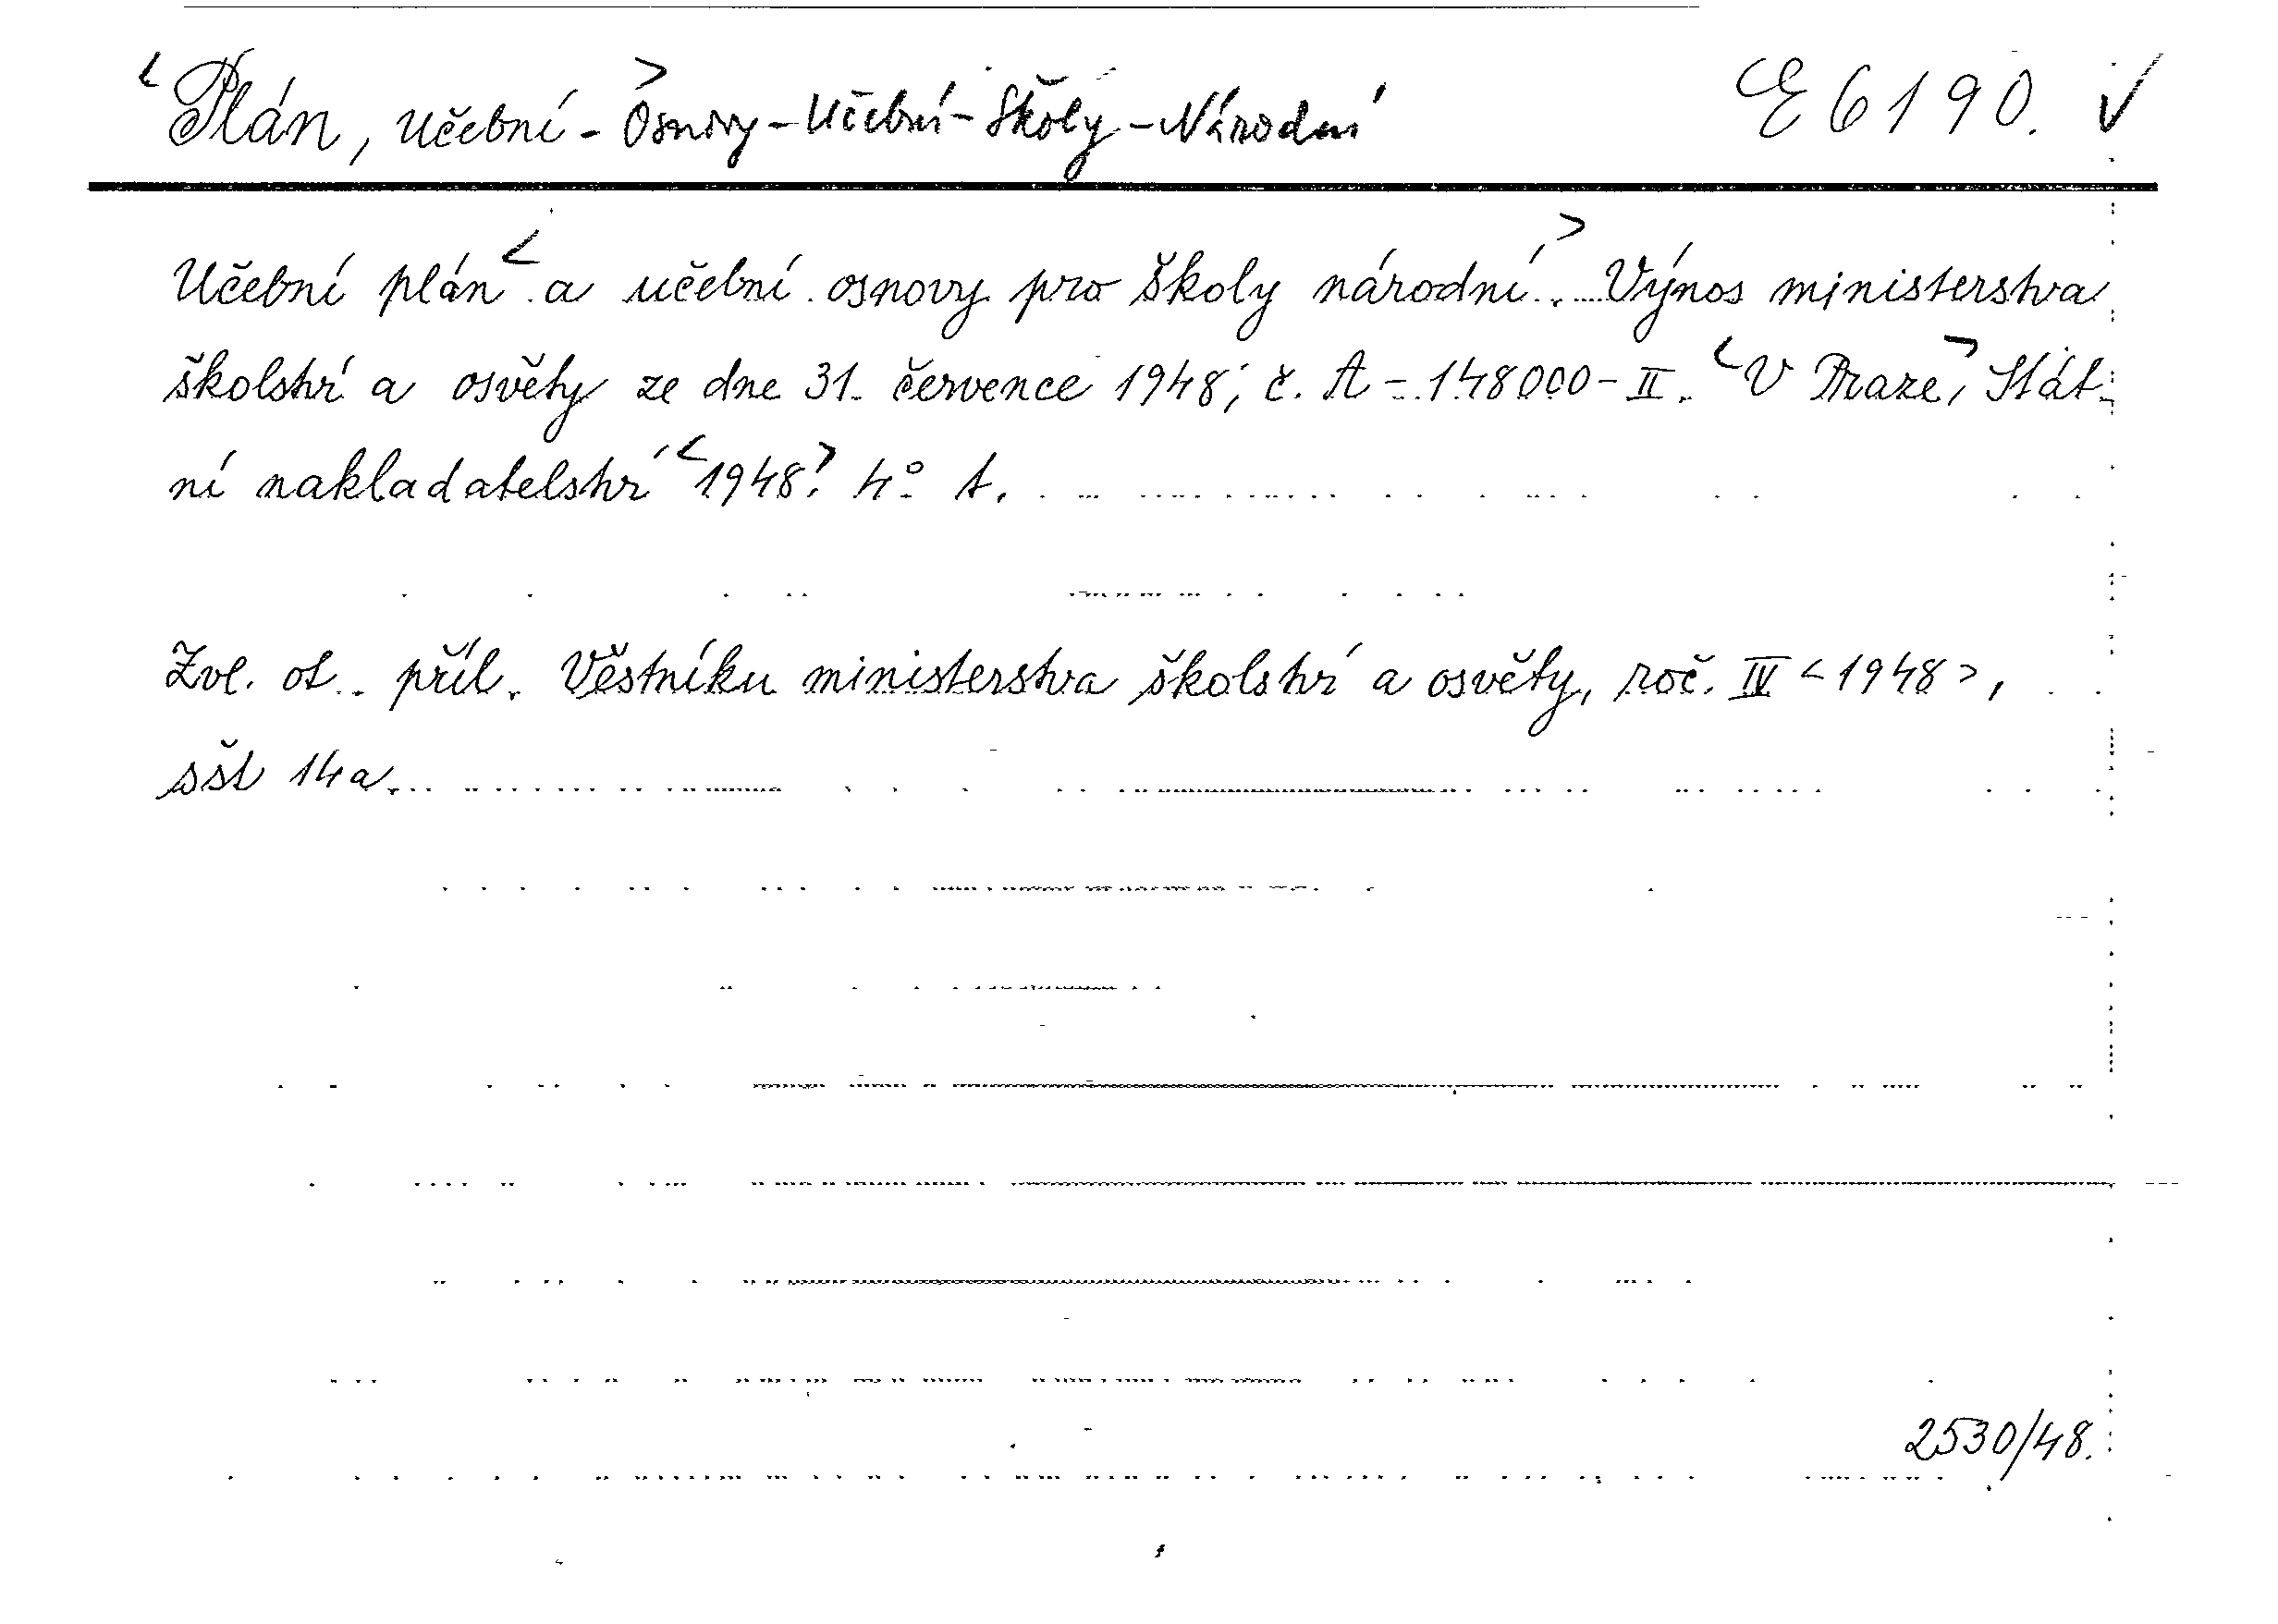 <Plán, učební - Osnovy> - Učební - Školy - Národní E 6190. √
Učební plán <a učební osnovy pro školy národní.> Výnos ministerstva
školství a osvěty ze dne 31. července 1948, č. A - 148000 - II. <V Praze>, Stát-
ní nakladatelství <1948>. 4° A.
Zvl. ot. příl. Věstníku ministerstva školství a osvěty, roč. IV <1948>,
sšt 14a.
2530/48.